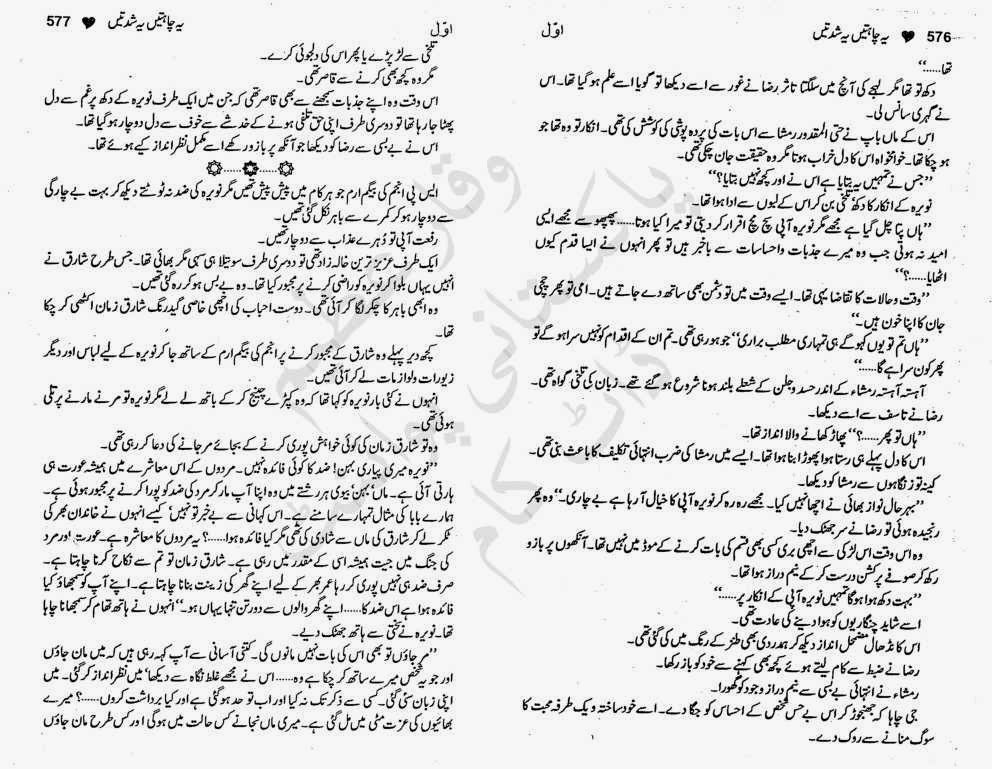 576 ♥ یہ چاہتیں یہ شدتیں
اوّل
تھا......‘‘
دکھ تو تھا مگر لہجے کی آنچ میں سلگتا تاثر رضا نے غور سے اسے دیکھا تو گویا اسے علم ہو گیا تھا۔ اس
نے گہری سانس لی۔
اس کے ماں باپ نے حتی المقدور رمشا سے اس بات کی پردہ پوشی کی کوشش کی تھی۔ انکار تو وہ تھا جو
ہو چکا تھا۔ خوامخواہ اس کا دل خراب ہوتا مگر وہ حقیقت جان چکی تھی۔
’’جس نے تمہیں یہ بتایا ہے اس نے اور کچھ نہیں بتایا؟‘‘
نویرہ کے انکار کا دکھ تلخی بن کر اس کے لبوں سے ادا ہوا تھا۔
’’ہاں پتا چل گیا ہے مجھے مگر نویرہ آپی سچ مچ اقرار کر دیتی تو میرا کیا ہوتا...... پھپھو سے مجھے ایسی
امید نہ ہوتی جب وہ میرے جذبات واحساسات سے باخبر ہیں تو پھر انہوں نے ایسا قدم کیوں
اٹھایا......؟‘‘
’’وقت و حالات کا تقاضا یہی تھا۔ ایسے وقت میں تو دشمن بھی ساتھ دے جاتے ہیں۔ امی تو پھر چچی
جان کا اپنا خون ہیں۔‘‘
’’ہاں تم تو یوں کہو گے ہی تمہاری مطلب براری‘‘ جو ہو رہی تھی۔ تم ان کے اقدام کو نہیں سراہو گے تو
پھر کون سراہے گا......‘‘
آہستہ آہستہ رمشاء کے اندر حسد و جلن کے شعلے بلند ہونا شروع ہو گئے تھے۔ زبان کی تلخی گواہ تھی۔
رضا نے تاسف سے اسے دیکھا۔
’’ہاں تو پھر......؟‘‘ پھاڑ کھانے والا انداز تھا۔
اس کا دل پہلے ہی رستا ہوا پھوڑا بنا ہوا تھا۔ ایسے میں رمشا کی ضرب انتہائی تکلیف کا باعث بنی تھی۔
کینہ توز نگاہوں سے رمشا کو دیکھا۔
’’بہرحال نواز بھائی نے اچھا نہیں کیا۔ مجھے رہ رہ کر نویرہ آپی کا خیال آ رہا ہے بے چاری۔‘‘ وہ پھر
رنجیدہ ہوئی تو رضا نے سر جھٹک دیا۔
وہ اس وقت اس لڑکی سے اچھی بری کسی بھی قسم کی بات کرنے کے موڈ میں نہیں تھا۔ آنکھوں پر بازو
رکھ کر صوفے پر کشن درست کر کے نیم دراز ہوا تھا۔
’’بہت دکھ ہوا ہو گا تمہیں نویرہ آپی کے انکار پر......‘‘
اسے شاید چنگاریوں کو ہوا دینے کی عادت تھی۔
اس کا نڈھال مضمحل انداز دیکھ کر ہمدردی بھی طنز کے رنگ میں کی گئی تھی۔
رضا نے ضبط سے کام لیتے ہوئے کچھ بھی کہنے سے خود کو باز رکھا۔
رمشاء نے انتہائی بے بسی سے نیم دراز وجود کو گھورا۔
جی چاہا کہ جھنجوڑ کر اس بے حس شخص کے احساس کو جگا دے۔ اسے خود ساختہ و یک طرفہ محبت کا
سوگ منانے سے روک دے۔
577 ♥ یہ چاہتیں یہ شدتیں
اوّل
تلخی سے لڑ پڑے یا پھر اس کی دلجوئی کرے۔
مگر وہ کچھ بھی کرنے سے قاصر تھی۔
اس وقت وہ اپنے جذبات سمجھنے سے بھی قاصر تھی کہ جن میں ایک طرف نویرہ کے دکھ پر غم سے دل
پھٹا جا رہا تھا تو دوسری طرف اپنی حق تلفی ہونے کے خدشے سے خوف سے دل دوچار ہو گیا تھا۔
اس نے بے بسی سے رضا کو دیکھا جو آنکھ پر بازو رکھے اسے مکمل نظر انداز کیے ہوئے تھا۔
ایس پی انجم کی بیگم ارم جو ہر کام میں پیش پیش تھیں مگر نویرہ کی ضد نہ ٹوٹتے دیکھ کر بہت بے چارگی
سے دوچار ہو کر کمرے سے باہر نکل گئی تھیں۔
رفعت آپی تو دُہرے عذاب سے دوچار تھیں۔
ایک طرف عزیز ترین خالہ زاد تھی تو دوسری طرف سوتیلا ہی سہی مگر بھائی تھا۔ جس طرح شارق نے
انہیں یہاں بلوا کر نویرہ کو راضی کرنے پر مجبور کیا تھا۔ وہ بے بس ہو کر رہ گئی تھیں۔
وہ ابھی باہر کا چکر لگا کر آئی تھی۔ دوست احباب کی اچھی خاصی گیدرنگ شارق زمان اکٹھی کر چکا
تھا۔
کچھ دیر پہلے وہ شارق کے مجبور کرنے پر انجم کی بیگم ارم کے ساتھ جا کر نویرہ کے لیے لباس اور دیگر
زیورات و لوازمات لے کر آئی تھیں۔
انہوں نے کئی بار نویرہ کو کہا تھا کہ وہ کپڑے چینج کر کے باتھ لے لے مگر نویرہ تو مرنے مارنے پر تلی
ہوئی تھی۔
وہ تو شارق زمان کی کوئی خواہش پوری کرنے کے بجائے مر جانے کی دعا کر رہی تھی۔
’’نویرہ میری پیاری بہن! ضد کا کوئی فائدہ نہیں۔ مردوں کے اس معاشرے میں ہمیشہ عورت ہی
ہارتی آئی ہے۔ ماں‘ بہن‘ بیوی ہر رشتے میں وہ اپنا آپ مار کر مرد کی ضد کو پورا کرنے پر مجبور ہوئی ہے۔
ہمارے بابا کی مثال تمہارے سامنے ہے۔ اس کہانی سے بے خبر تو نہیں‘ کیسے انہوں نے خاندان بھر کی
ٹکر لے کر شارق کی ماں سے شادی کی تھی مگر کیا فائدہ ہوا......؟ یہ مردوں کا معاشرہ ہے۔ عورت اور مرد
کی جنگ میں جیت ہمیشہ اسی کے مقدر میں رہی ہے۔ شارق زمان تو تم سے نکاح کرنا چاہتا ہے۔
صرف ضد ہی نہیں پوری کر رہا عمر بھر کے لیے اپنے گھر کی زینت بنانا چاہتا ہے۔ اپنے آپ کو سمجھاؤ کیا
فائدہ ہوا ہے اس ضد کا...... اپنے گھر والوں سے دور تن تنہا یہاں ہو۔‘‘ انہوں نے ہاتھ تھام کر سمجھانا چاہا
تھا۔ نویرہ نے سختی سے ہاتھ جھٹک دیے۔
’’مر جاؤں تو بھی اس کی بات نہیں مانوں گی۔ کتنی آسانی سے آپ کہہ رہی ہیں کہ میں مان جاؤں
اور جو یہ شخص میرے ساتھ کر چکا ہے وہ...... اس نے مجھے غلط نگاہ سے دیکھا‘ میں نظر انداز کر گئی۔ میں
اپنی زبان سی گئی۔ کسی سے ذکر تک نہ کیا اور اب تو حد ہو گئی ہے اور کیا برداشت کروں......؟ میرے
بھائیوں کی عزت مٹی میں مل گئی ہے۔ میری ماں نجانے کس حالت میں ہو گی اور کس طرح مان جاؤں
پاکستانی پوائنٹ
ڈاٹ کام
وقار عظیم